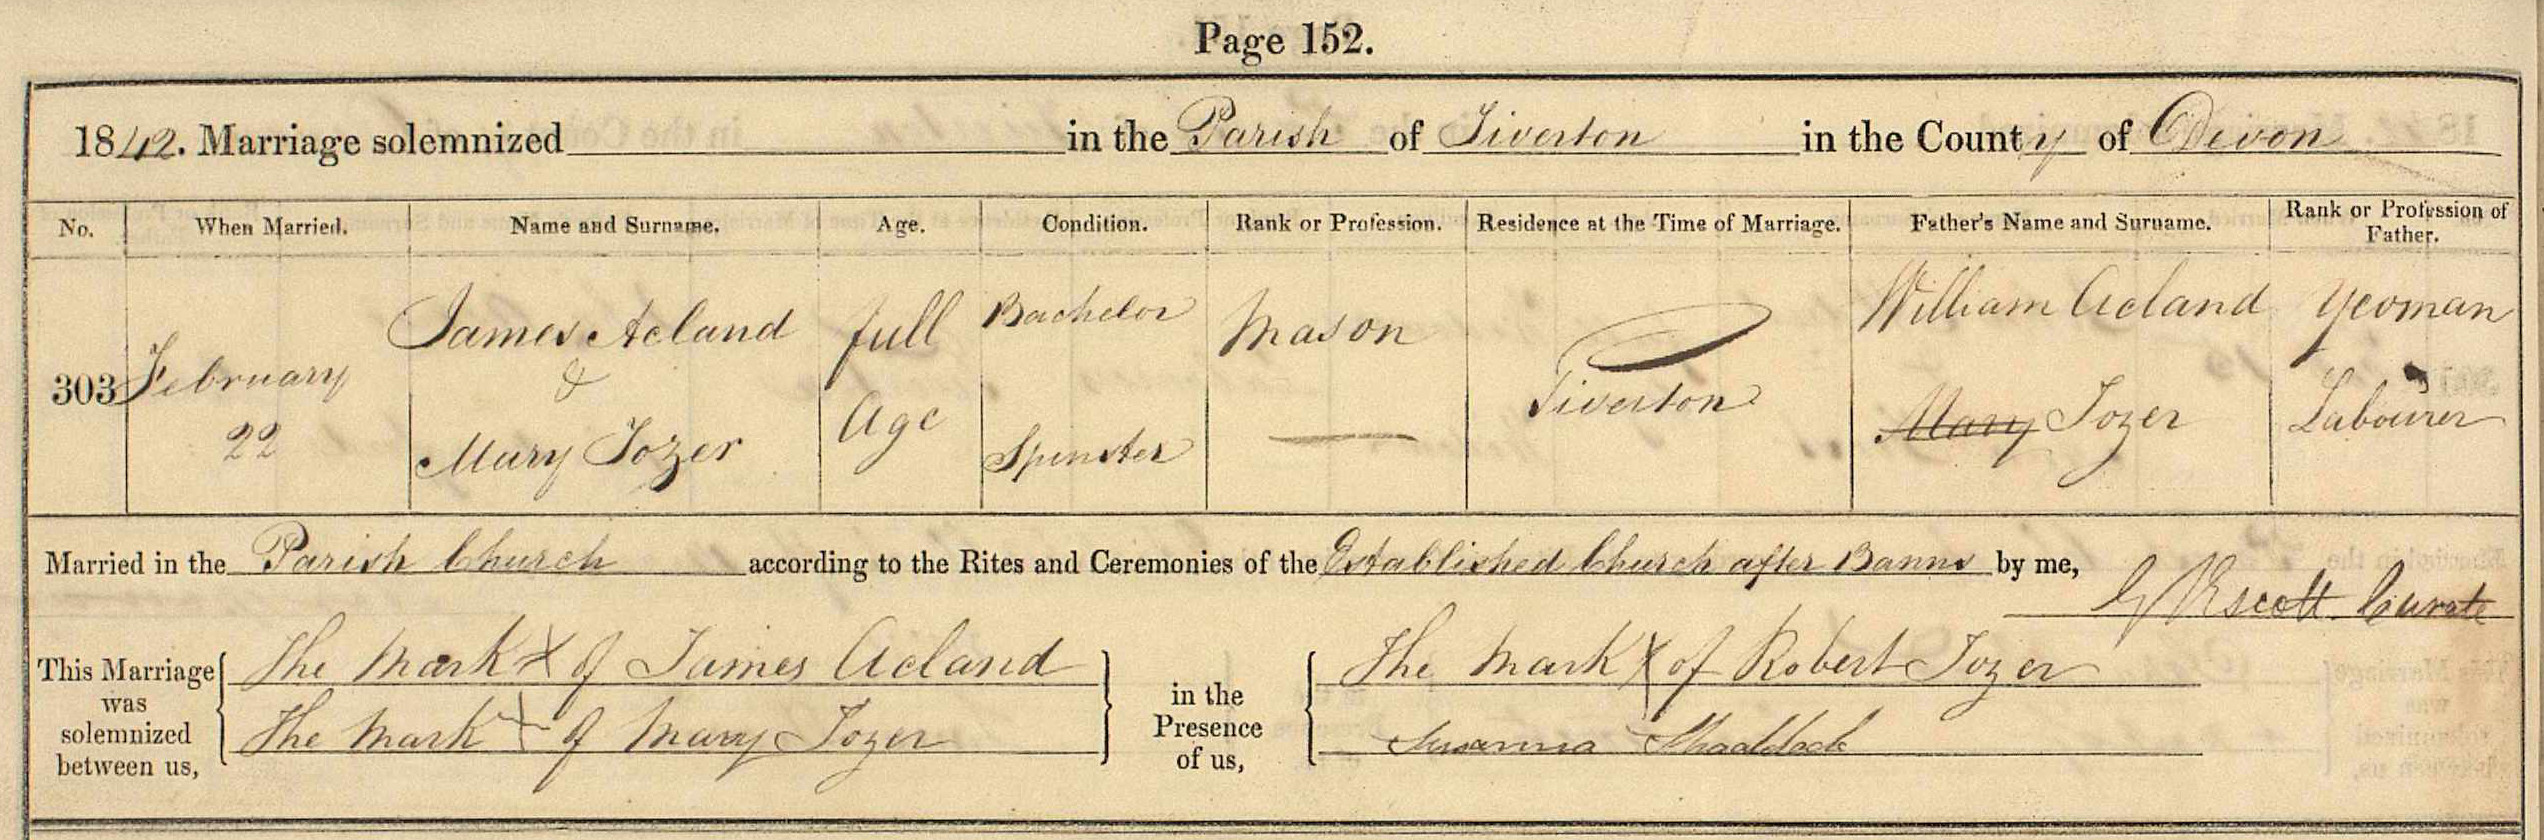 Page 152.
1842. Marriage solemnized in the Parish of Tiverton in the County of Devon
No. When Married. Name and Surname. Age. Condition. Rank or Profession. Residence at the Time of Marriage. Father's Name and Surname. Rank or Profession of Father.
303 February 22 James Acland & Mary Tozer full Age Bachelor Spinster Mason — Tiverton William Acland Mary Tozer Yeoman Labourer
Married in the Parish Church according to the Rites and Ceremonies of the Established Church after Banns by me,
Escott. Curate
This Marriage was solemnized between us,
The Mark X of James Acland
The Mark X of Mary Tozer
in the Presence of us,
The Mark X of Robert Tozer
Susanna